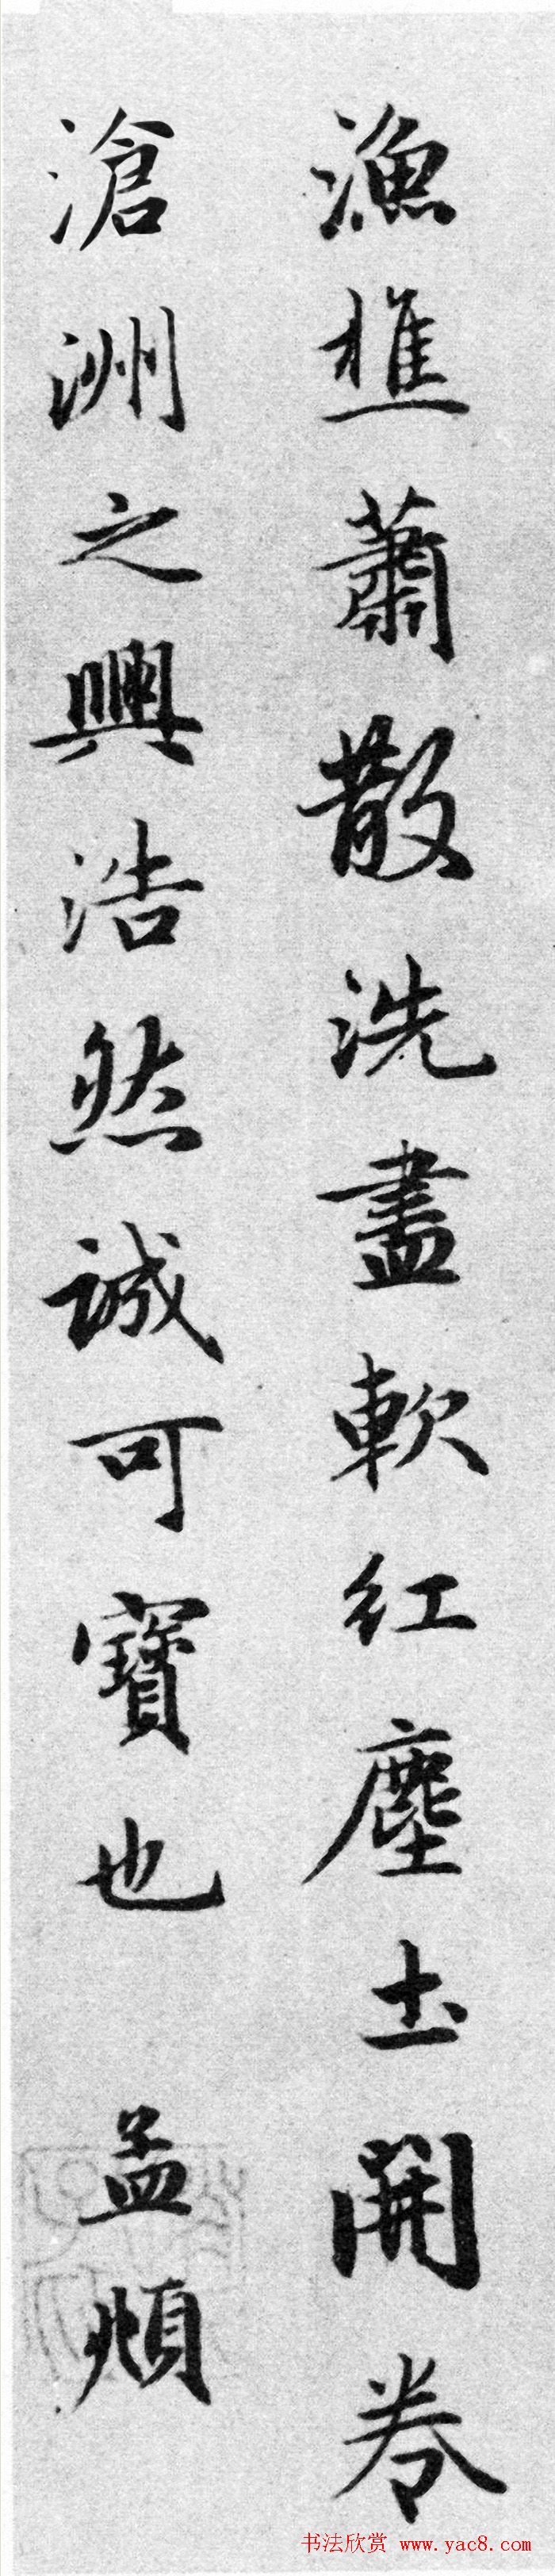 漁樵蕭散洗盡軟紅塵土開卷
滄洲之興浩然誠可寶也 孟頫
书法欣赏 www.yac8.com